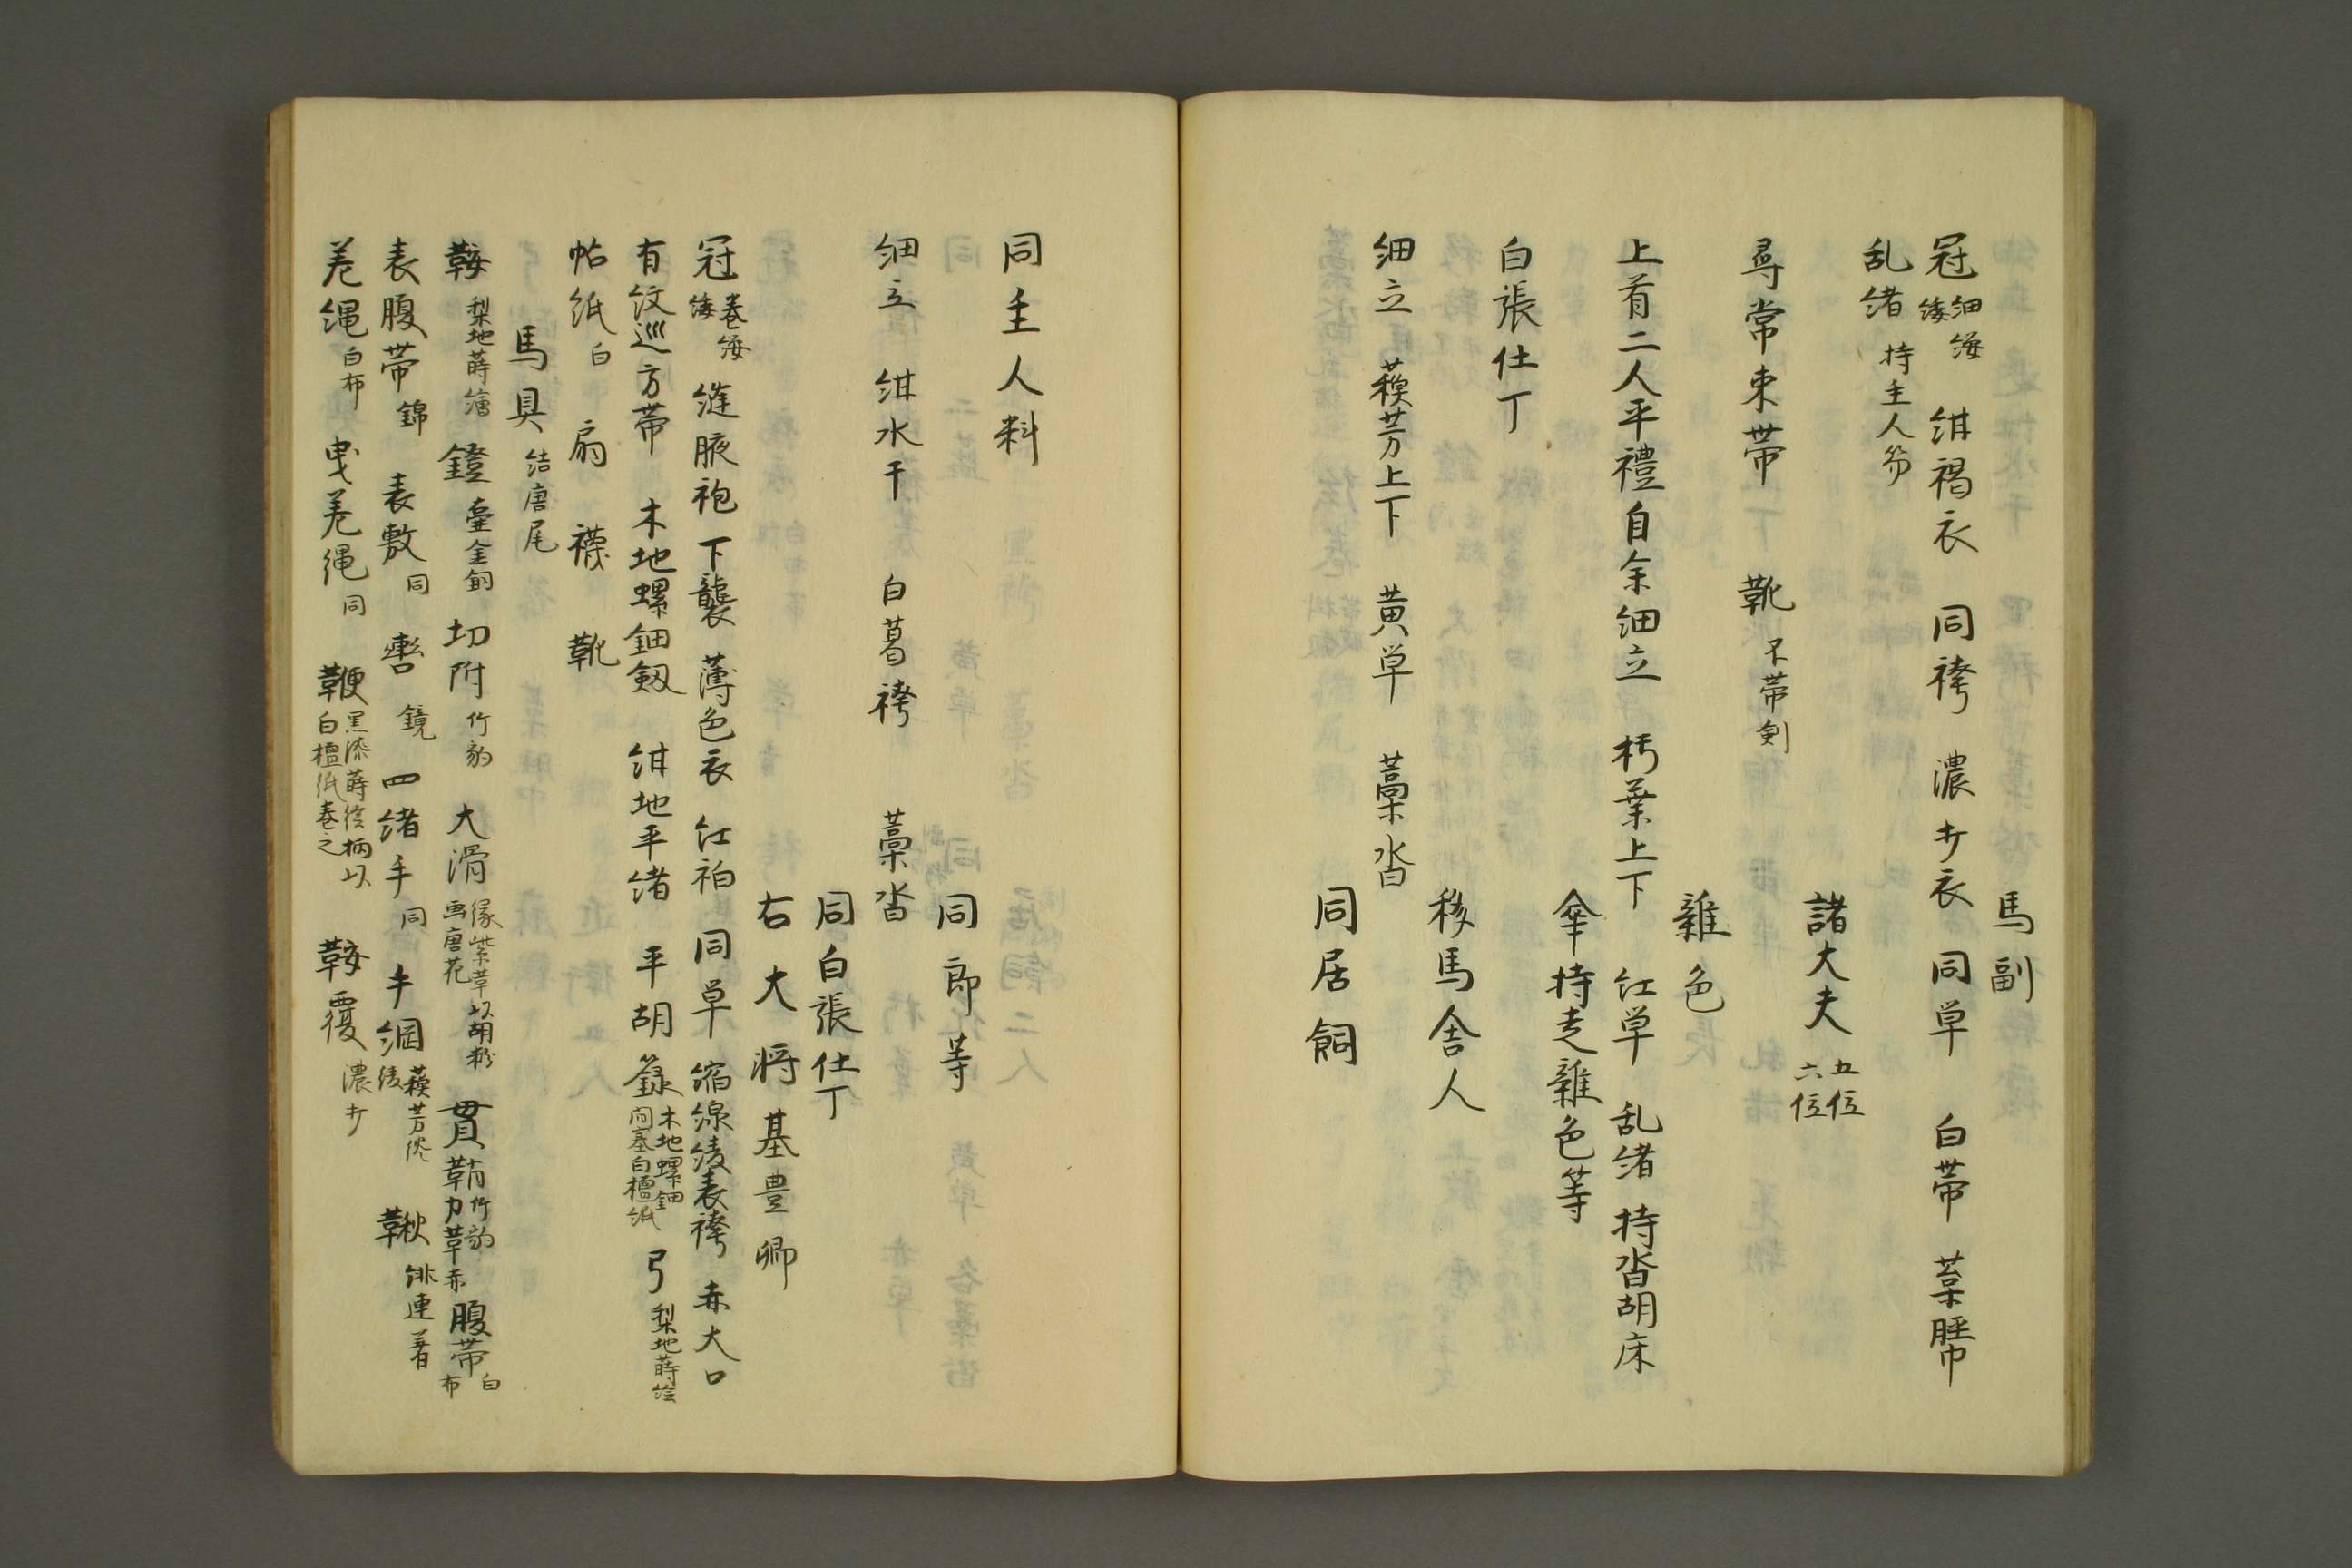 馬副
冠 細纓 緌 紺褐衣 同袴 濃打衣 同単 白帯 葉脛巾
乱緒 持主人笏
諸大夫 五位 六位
尋常束帯 靴 不帯剣
雑色
上首二人平禮自余細立 朽葉上下 紅単 乱緒 持沓胡床
傘持走雑色等
白張仕丁
移馬舎人
細立 蘓芳上下 黄単 藁沓
同居飼
同主人料
同郎等
細立 紺水干 白葛袴 藁沓
同白張仕丁
右大将基豊卿
冠 巻纓 緌 縫腋袍 下襲 薄色衣 紅袙 同単 縮線綾表袴 赤大口
有紋巡方帯 木地螺鈿剱 紺地平緒 平胡籙 木地螺鈿 間塞白檀紙 弓 梨地蒔絵
帖紙 白 扇 襪 靴
馬具 結唐尾
鞍 梨地蒔繪 鐙 壷金銅 切附 竹豹 大滑 縁紫革以胡粉 画唐花 貫鞘 竹豹 力革 赤 腹帯 白布
表腹帯 錦 表敷 同 轡 鏡 四緒手 同 手綱 蘓芳 綾 鞦 緋連著
差縄 白布 曳差縄 同 鞭 黒漆蒔絵柄以 白檀紙巻之 鞍覆 濃打